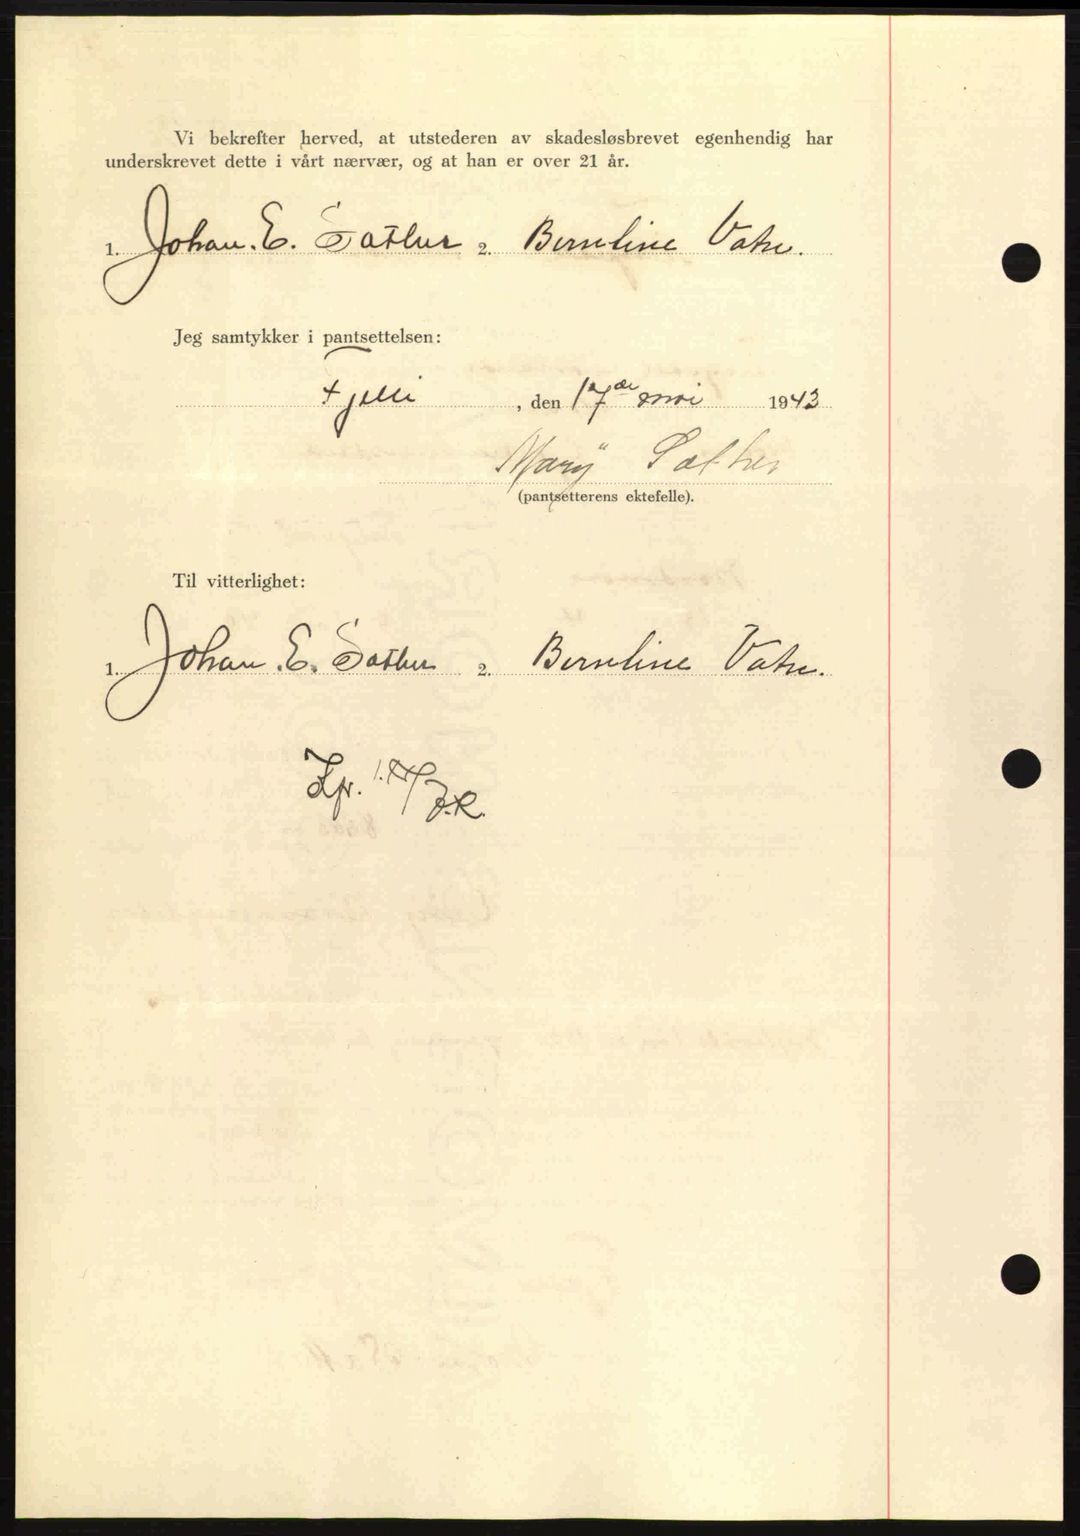 Vi bekrefter herved, at utstederen av skadesløsbrevet egenhendig har
underskrevet dette i vårt nærvær, og at han er over 21 år.
1. Johan. E. Sæther 2. Bernline Vatn.
Jeg samtykker i pantsettelsen:
, den 17de mai 1943
Mary Sæther
(pantsetterens ektefelle).
Til vitterlighet:
1. Johan. E. Sæther 2. Bernline Vatn.